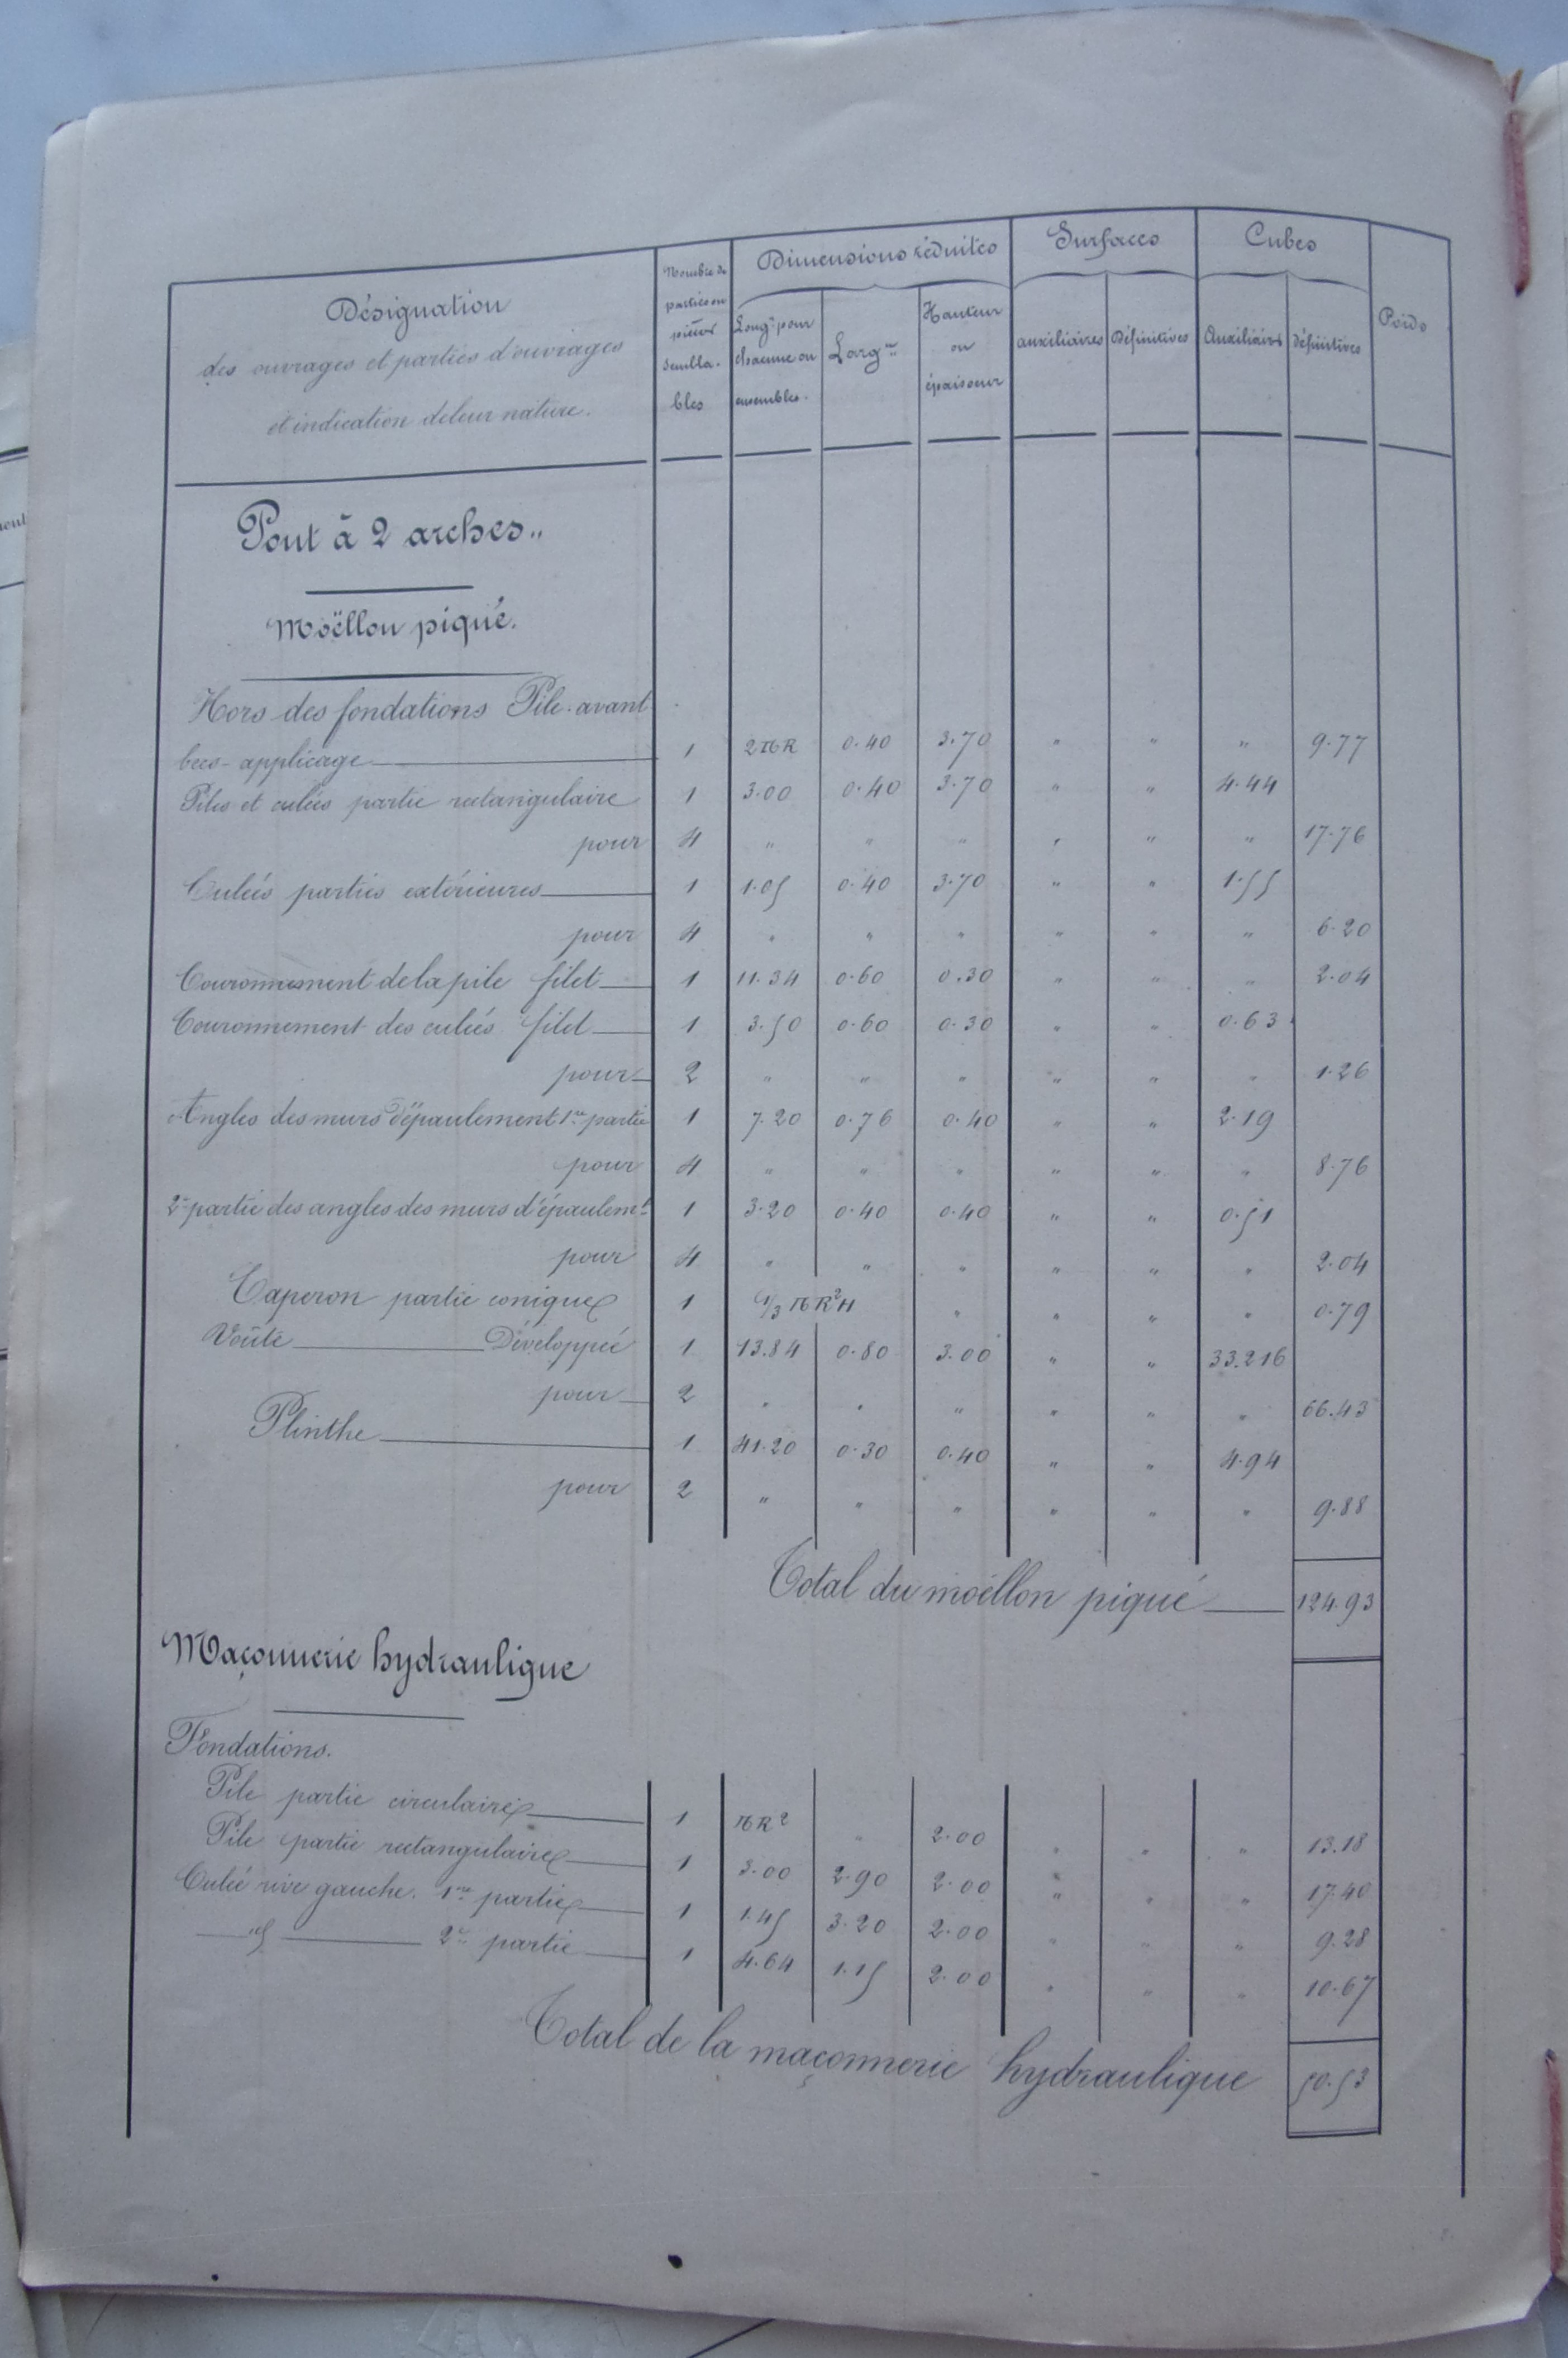 Désignation
des ouvrages et parties d'ouvrages
et indication de leur nature.
Nombre de
parties ou
pièces
sembla-
bles
Dimensions réduites
Long.r pour
chacune ou
ensembles.
Larg.r
Hauteur
ou
épaisseur
Surfaces
auxiliaires Définitives
Cubes
Auxiliaires définitives
Poids
Pont à 2 arches..
Moëllon piqué.
Hors des fondations Pile-avant
becs-applicage 1 2πR 0.40 3.70 " " " 9.77
Piles et culées partie rectangulaire 1 3.00 0.40 3.70 " " 4.44
pour 4 " " " " " " 17.76
Culées parties extérieures 1 1.05 0.40 3.70 " " 1.55
pour 4 " " " " " " 6.20
Couronnement de la pile filet 1 11.34 0.60 0.30 " " " 2.04
Couronnement des culées filet 1 3.50 0.60 0.30 " " 0.63
pour 2 " " " " " " 1.26
Angles des murs d'épaulement 1re partie 1 7.20 0.76 0.40 " " 2.19
pour 4 " " " " " " 8.76
2e partie des angles des murs d'épaulemt 1 3.20 0.40 0.40 " " 0.51
pour 4 " " " " " " 2.04
Caperon partie conique 1 1/3 πR²H " " " " 0.79
Voûte Développée 1 13.84 0.80 3.00 " " 33.216
pour 2 " " " " " " 66.43
Plinthe 1 41.20 0.30 0.40 " " 4.94
pour 2 " " " " " " 9.88
Total du moëllon piqué 124.93
Maçonnerie hydraulique
Fondations.
Pile partie circulaire 1 πR² " 2.00 " " " 13.18
Pile partie rectangulaire 1 3.00 2.90 2.00 " " " 17.40
Culée rive gauche. 1re partie 1 1.45 3.20 2.00 " " " 9.28
2e partie 1 4.64 1.15 2.00 " " " 10.67
Total de la maçonnerie hydraulique 50.53